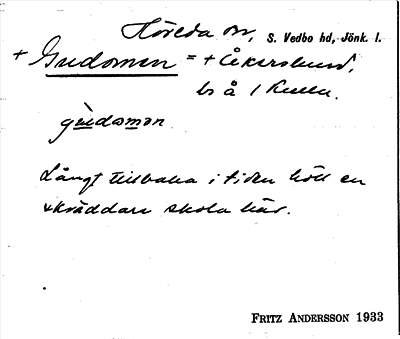 Höreda sn, S. Vedbo hd, Jönk. l.
+ Gudomen = + Åkerslund,
ls å 1 Kulla.
gùdomən
Långt tillbaka i tiden höll en
skräddare skola här.
FRITZ ANDERSSON 1933